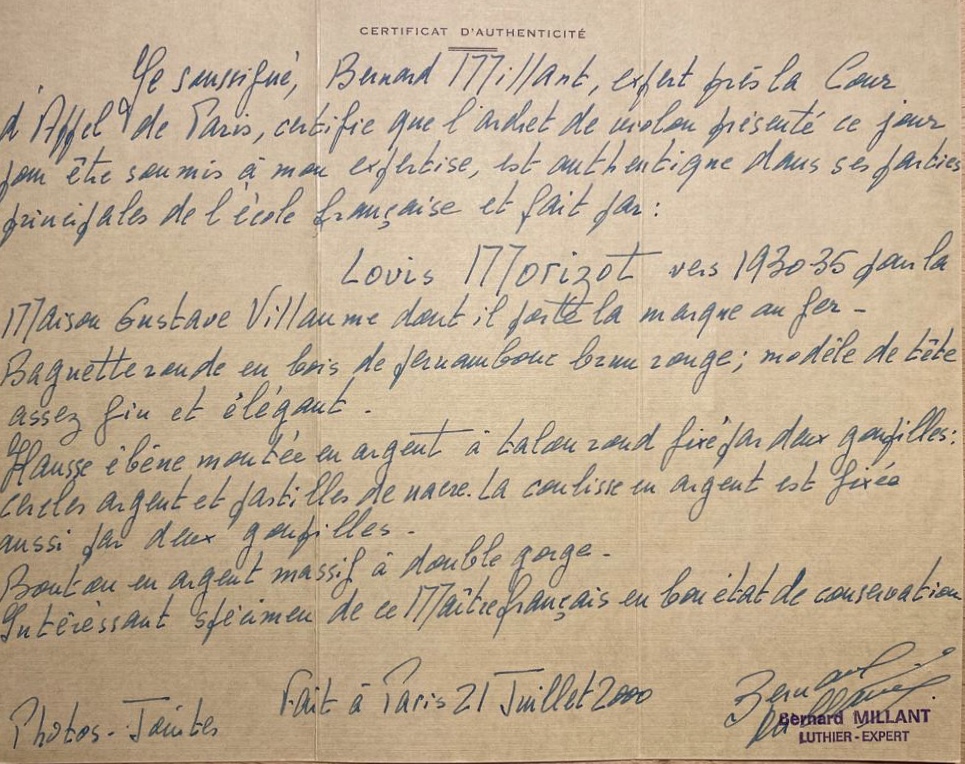 CERTIFICAT D'AUTHENTICITÉ
Je soussigné, Bernard Millant, expert près la Cour
d'Appel de Paris, certifie que l'archet de violon présenté ce jour
pour être soumis à mon expertise, est authentique dans ses parties
principales de l'école française et fait par :
Louis Morizot vers 1930-35 pour la
Maison Gustave Villaume dont il porte la marque au fer -
Baguette ronde en bois de pernambouc brun rouge ; modèle de tête
assez fin et élégant .
Hausse ébène montée en argent à talon rond fixé par deux goupilles :
cercles argent et pastilles de nacre. La coulisse en argent est fixée
aussi par deux goupilles -
Bouton en argent massif à double gorge -
Intéréssant spécimen de ce Maître français en bon état de conservation
Fait à Paris 21 Juillet 2000
Photos - Jointes
Bernard Millant
Bernard MILLANT
LUTHIER - EXPERT